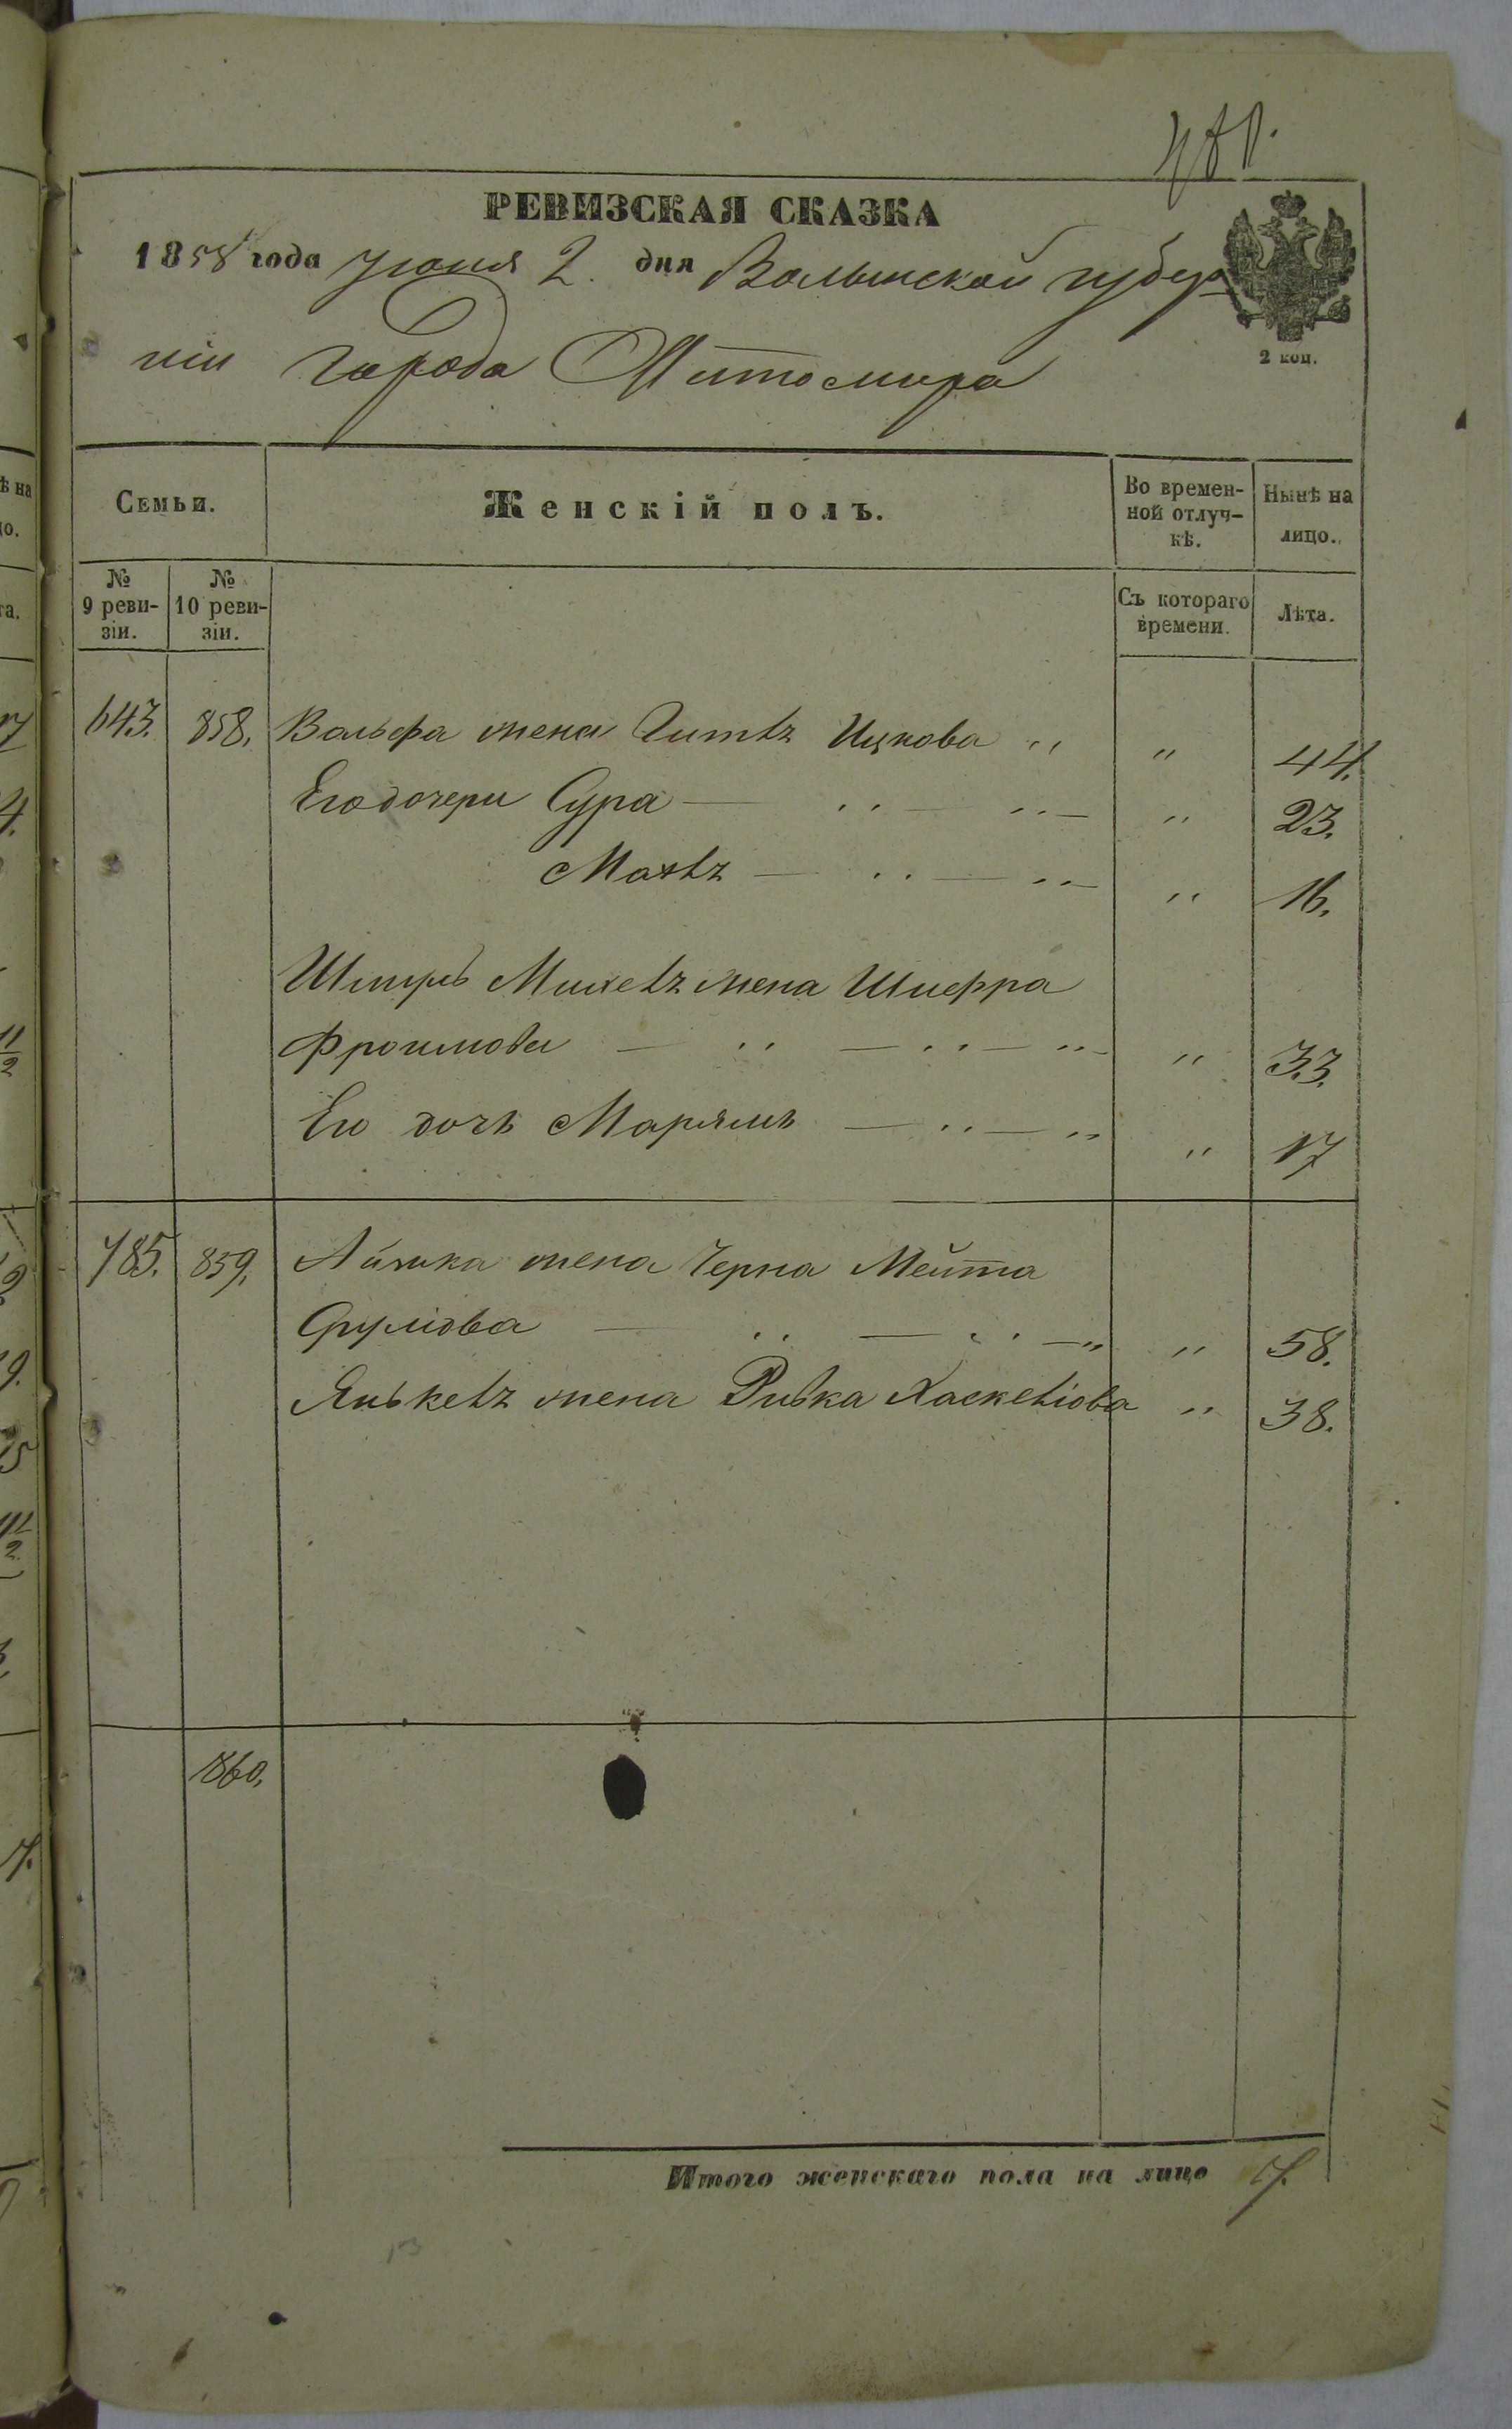 РЕВИЗСКАЯ СКАЗКА
1858 года Іюня 2. дня Волынской губер
ніи города Житомира
2 коп.
Семьи.
Женскій полъ.
Во времен-
ной отлуч-
кѣ.
Нынѣ на
лицо.
№
9 реви-
зіи.
№
10 реви-
зіи.
Съ котораго
времени.
Лѣта.
643. 858. Вольфа жена Гитль Ицкова " " 44.
Его дочери Сура — " — " — " 23.
Махль — " — " — " 16.
Шмуль Михель жена Шифра
Фроимова — " — " — " — " 33.
Его дочь Марямъ — " — " " 17
785. 859. Айзика жена Черна Мейта
Срулiова — " — " — " " 58.
Янькель жена Ривка Хаскелiова " 38.
860.
Итого женскаго пола на лицо 7.